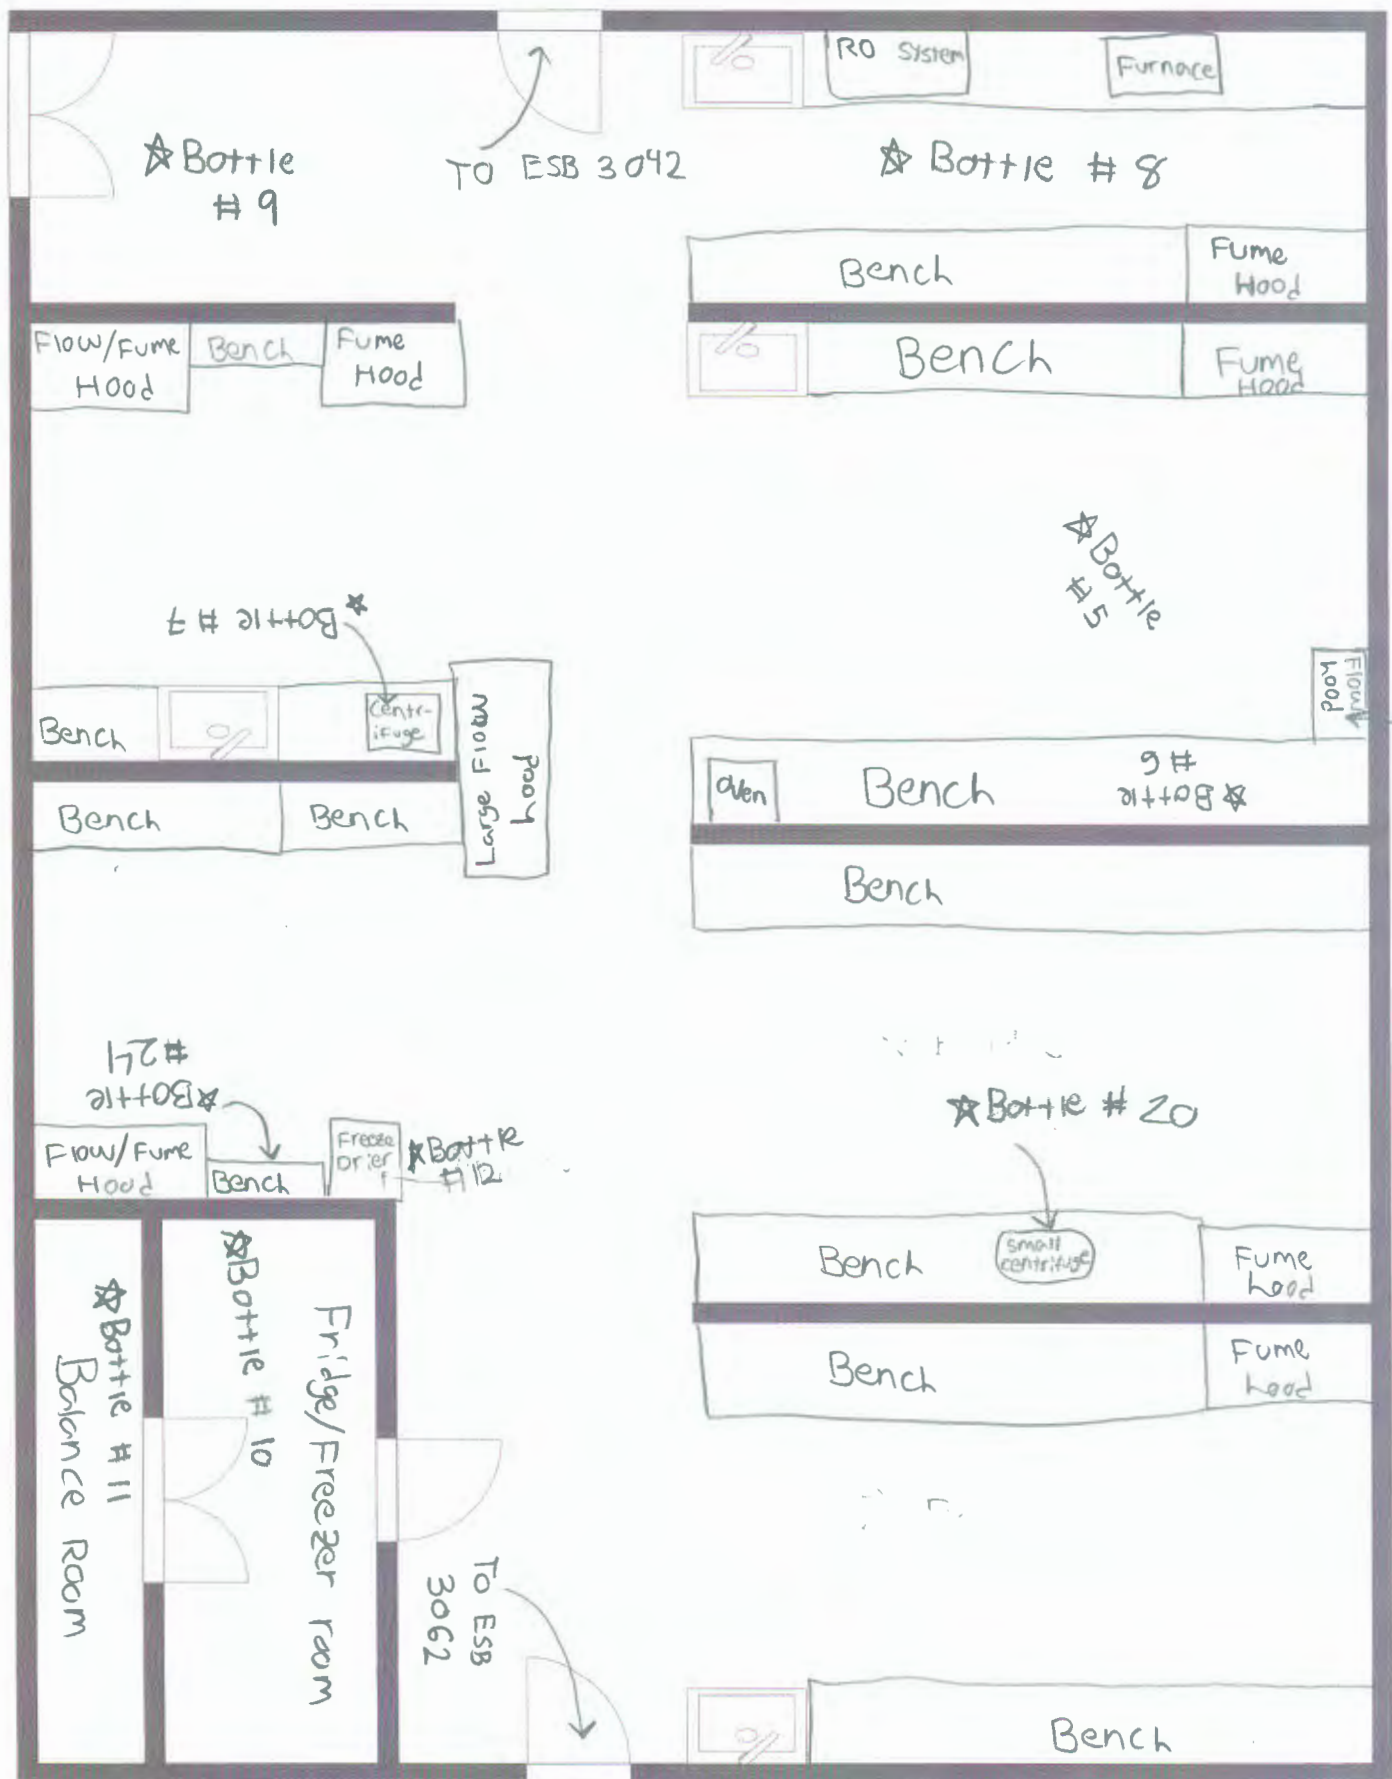 RO System
Furnace
☆ Bottle
# 9
TO ESB 3042
☆ Bottle # 8
Bench
Fume
Hood
Flow/Fume
Hood
Bench
Fume
Hood
Bench
Fume
Hood
☆ Bottle
# 5
☆ Bottle # 7
Flow
hood
Bench
Centr-
ifuge
Large Flow
hood
Oven
Bench
☆ Bottle
# 6
Bench
Bench
Bench
☆ Bottle
#24
☆ Bottle # 20
Flow/Fume
Hood
Bench
Freeze
Drier
☆ Bottle
#12
Bench
Small
centrifuge
Fume
hood
☆ Bottle # 11
Balance Room
☆ Bottle # 10
Fridge/Freezer room
Bench
Fume
hood
To ESB
3062
Bench